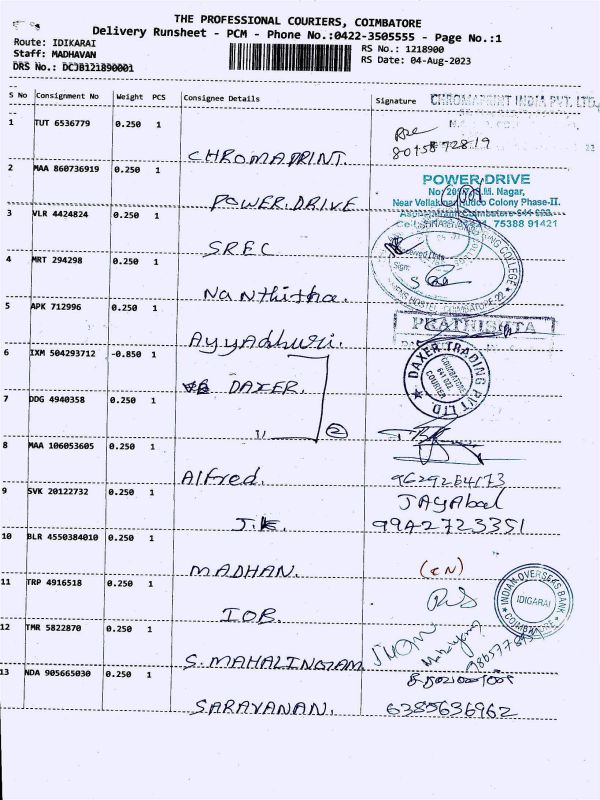 THE PROFESSIONAL COURIERS, COIMBATORE
Delivery Runsheet - PCM - Phone No.:0422-3505555 - Page No.:1
Route: IDIKARAI
Staff: MADHAVAN
DRS No.: DCJB121890001
RS No.: 1218900
RS Date: 04-Aug-2023
S No Consignment No Weight PCS Consignee Details Signature
CHROMAPRINT INDIA PVT. LTD.
1 TUT 6536779 0.250 1
CHROMAPRINT.
2 MAA 860736919 0.250 1
POWER DRIVE
POWER.DRIVE
Nagar,
Colony Phase-II.
75388 91421
3 VLR 4424824 0.250 1
SREC
COLLEGE
4 MRT 294298 0.250 1
Nanthitha.
5 APK 712996 0.250 1
PRATHISHTA
Ayyadhurai.
6 IXM 504293712 -0.850 1
DAXER.
DAXER TRADING PVT LTD.
COIMBATORE
COURIER
7 DDG 4940358 0.250 1
" 2
8 MAA 106053605 0.250 1
Alfred.
9629284173
9 SVK 20122732 0.250 1
JAYAbal
J.K.
9942723351
10 BLR 4550384010 0.250 1
MADHAN.
(CN)
11 TRP 4916518 0.250 1
I.O.B.
INDIAN OVERSEAS BANK
IDIGARAI
COIMBATORE
12 TMR 5822870 0.250 1
S.MAHALINGAM
13 NDA 905665030 0.250 1
SARAVANAN.
6385636962